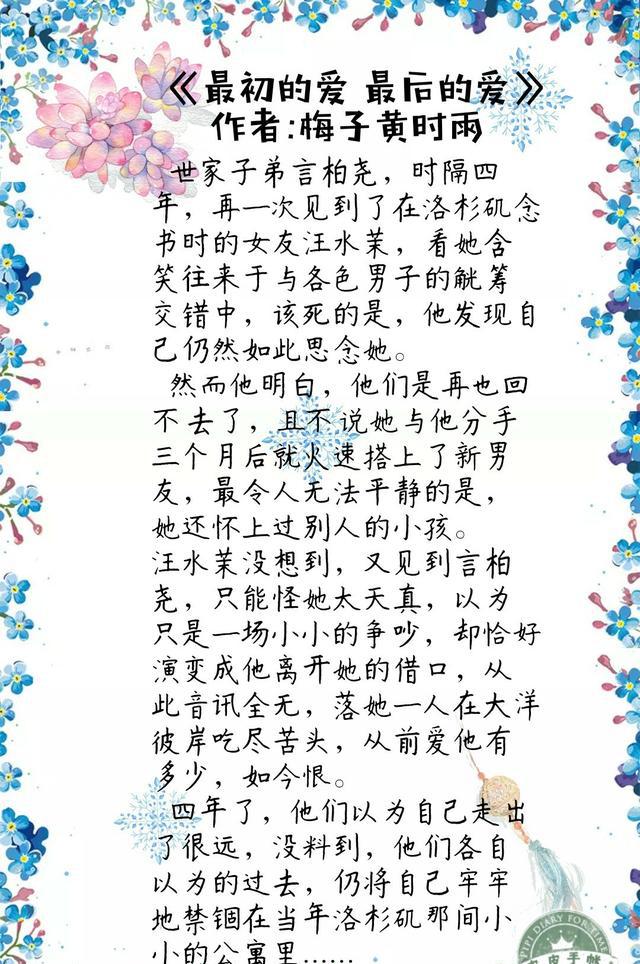 《最初的爱 最后的爱》
作者:梅子黄时雨
世家子弟言柏尧，时隔四
年，再一次见到了在洛杉矶念
书时的女友汪水茉，看她含
笑往来于与各色男子的觥筹
交错中，该死的是，他发现自
己仍然如此思念她。
然而他明白，他们是再也回
不去了，且不说她与他分手
三个月后就火速搭上了新男
友，最令人无法平静的是，
她还怀上过别人的小孩。
汪水茉没想到，又见到言柏
尧，只能怪她太天真，以为
只是一场小小的争吵，却恰好
演变成他离开她的借口，从
此音讯全无，落她一人在大洋
彼岸吃尽苦头，从前爱他有
多少，如今恨。
四年了，他们以为自己走出
了很远，没料到，他们各自
以为的过去，仍将自己牢牢
地禁锢在当年洛杉矶那间小
小的公寓里……
PIPI DIARY FOR TIME
皮皮手帐